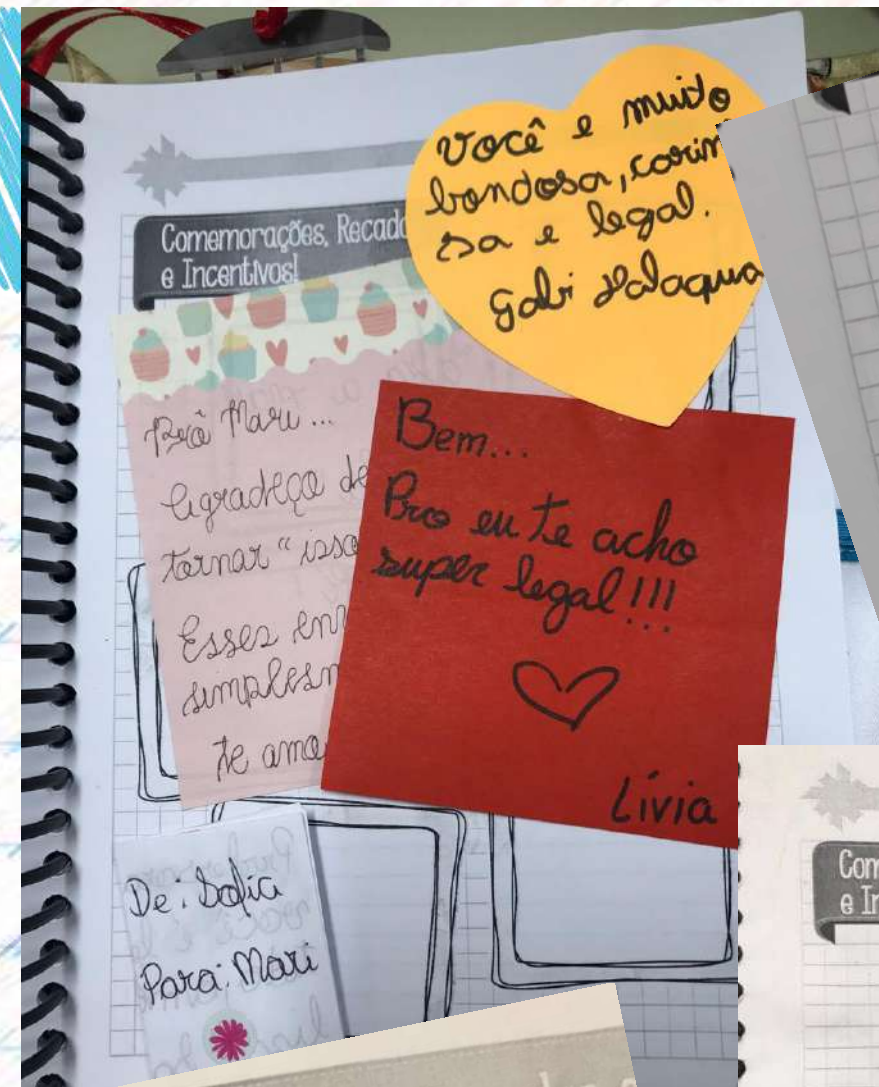 Comemorações, Recado
e Incentivos!
você e muito
bondosa, carin
sa e legal.
Gabi
Prô Mari...
Agradeço de
tornar "isso
Esses
simplesm
te amo
Bem...
Pro eu te acho
super legal!!!
Lívia
De: Sofia
Para: Mari
Com
e In